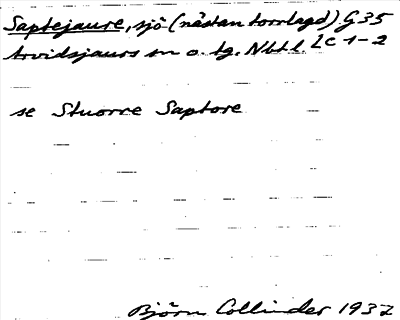 Saptejaure, sjö (nästan torrlagd) G 35
Arvidsjaurs sn o. tg. Nbtl. Lc 1-2
se Stuorre Saptore
Björn Collinder 1937